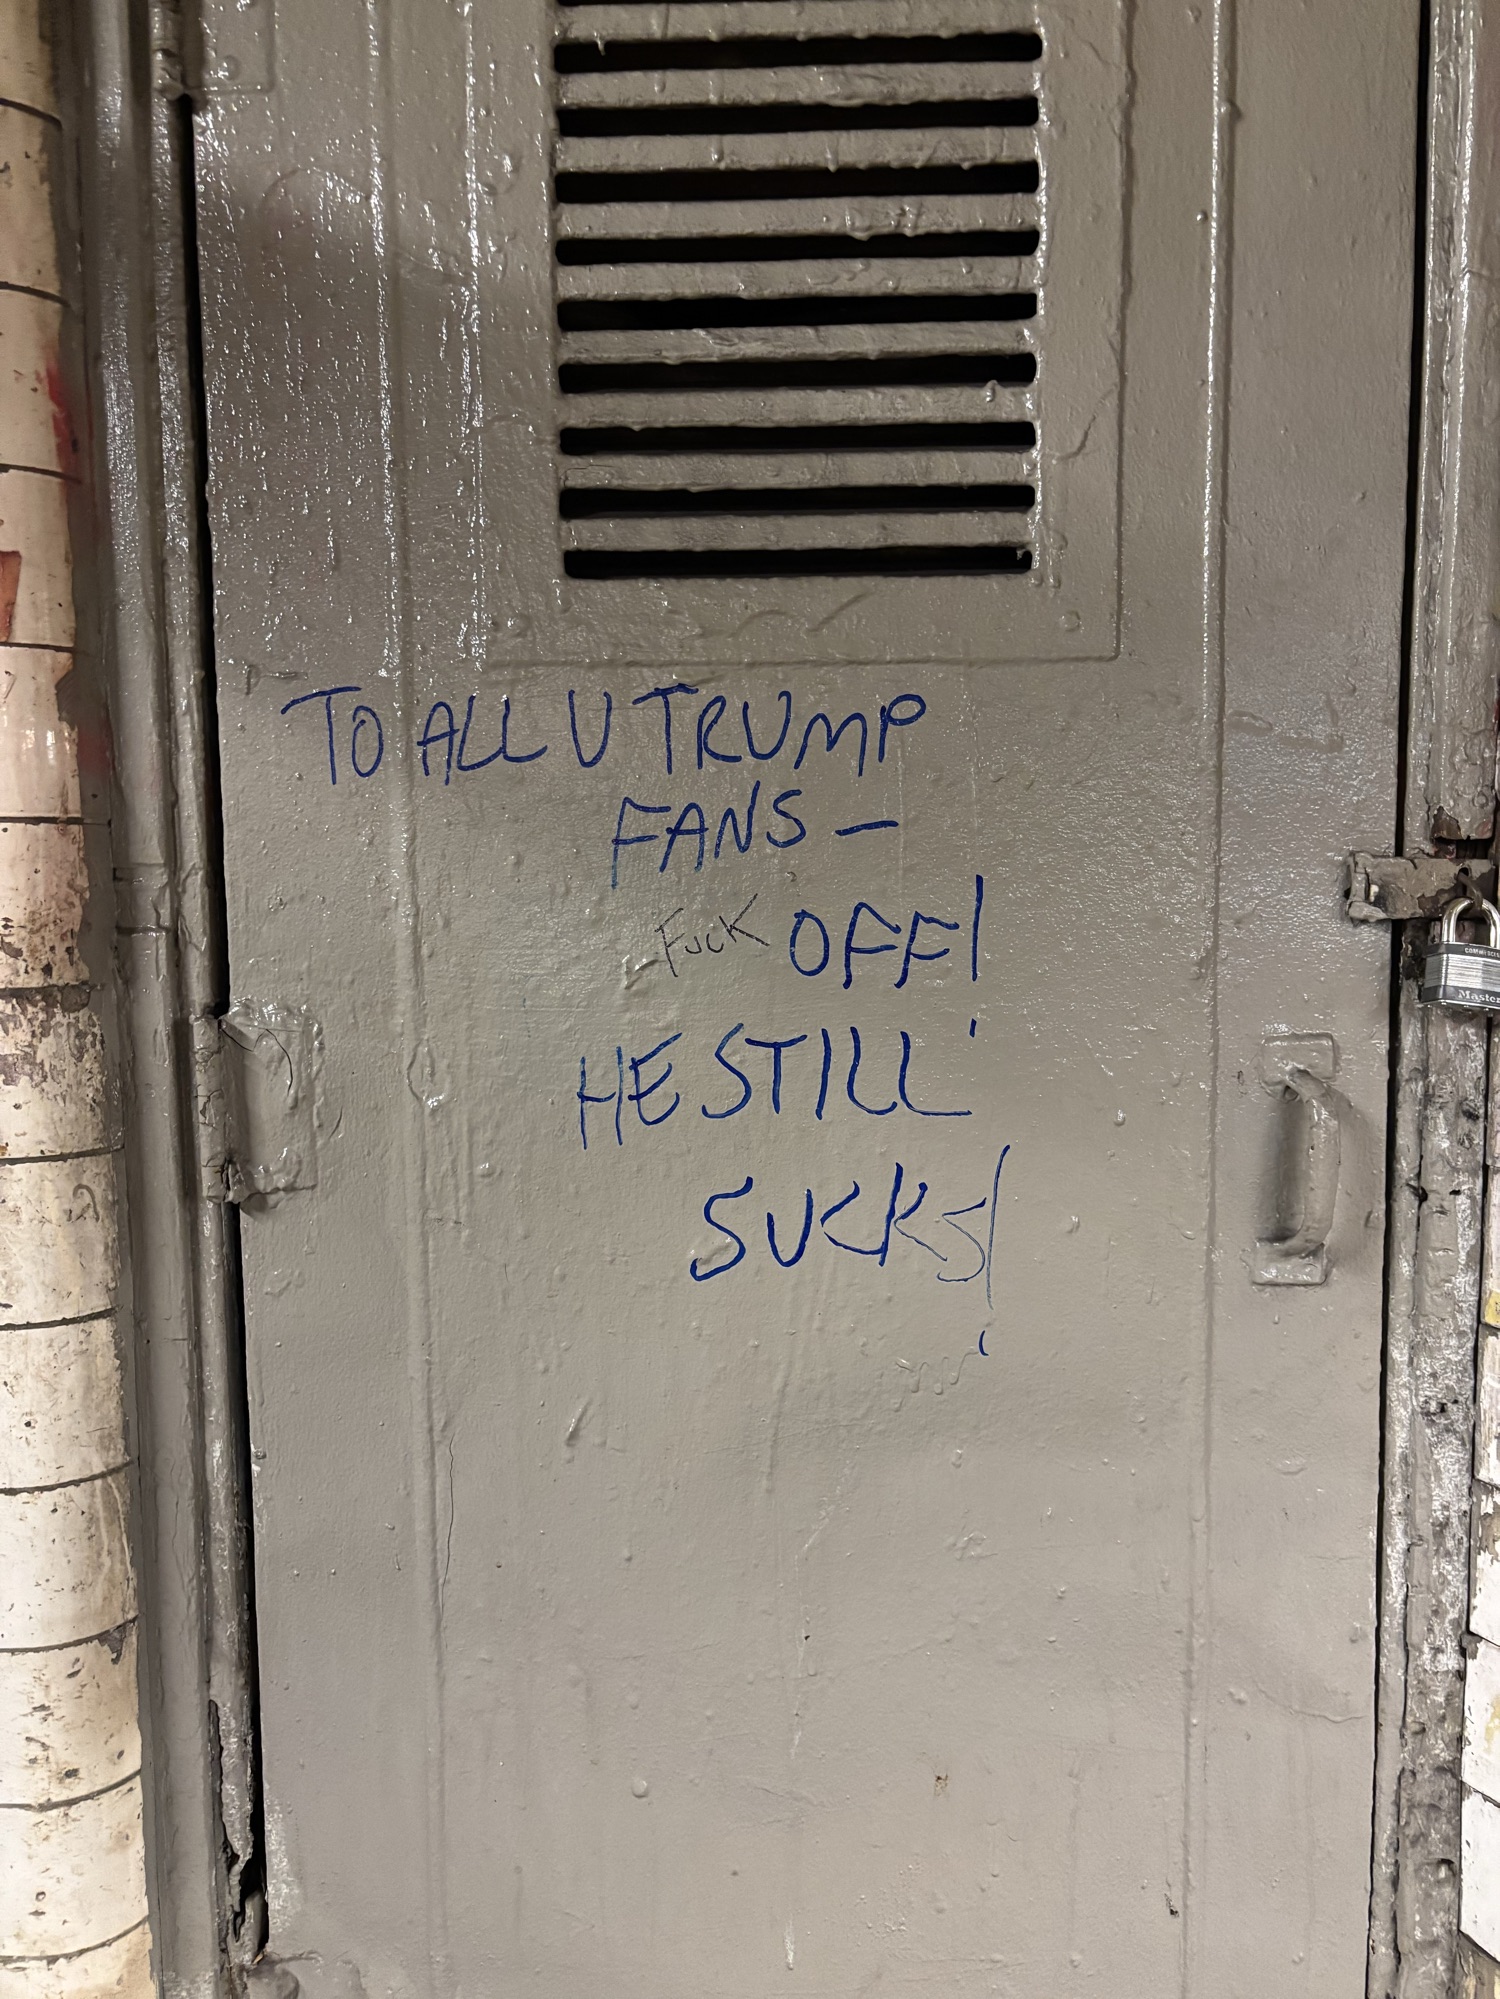 TO ALL U TRUMP
FANS —
FUCK OFF!
HE STILL
SUCKS!
Master